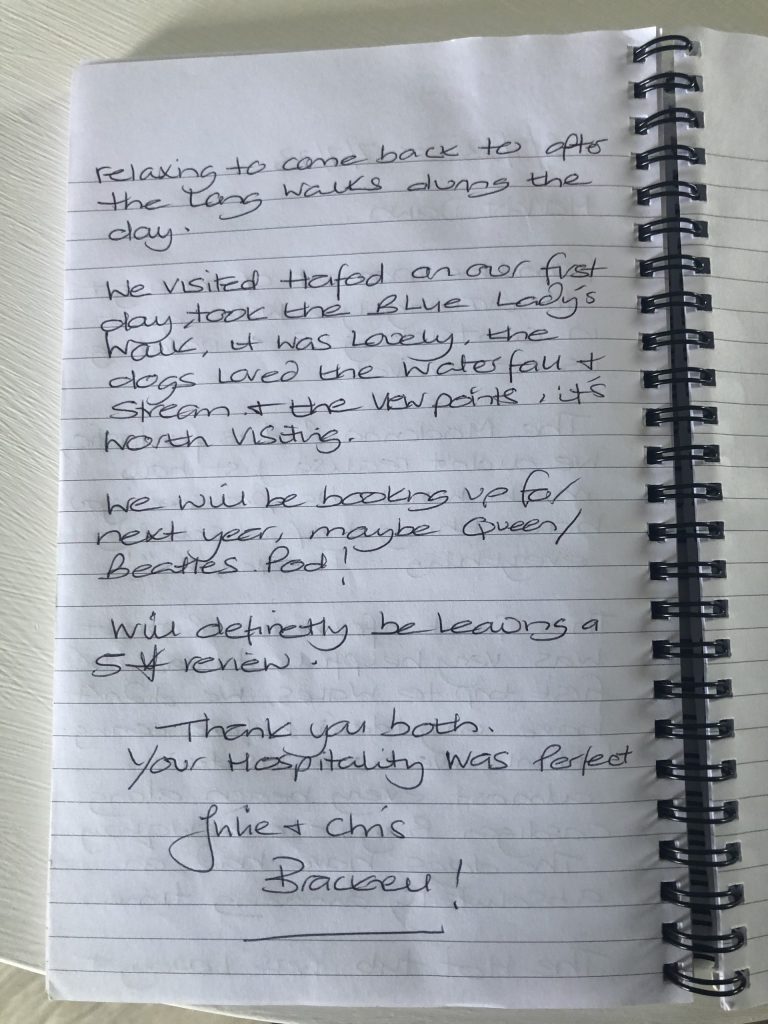 relaxing to come back to after
the long walks during the
day.
We visited Hafod on our first
day, took the Blue Lady's
walk, it was lovely, the
dogs loved the waterfall +
stream + the view points, it's
worth visiting.
We will be booking up for
next year, maybe Queen/
Beatles Pod!
Will definetly be leaving a
5☆ review.
Thank you both.
Your Hospitality was Perfect
Julie + Chris
Bracken!